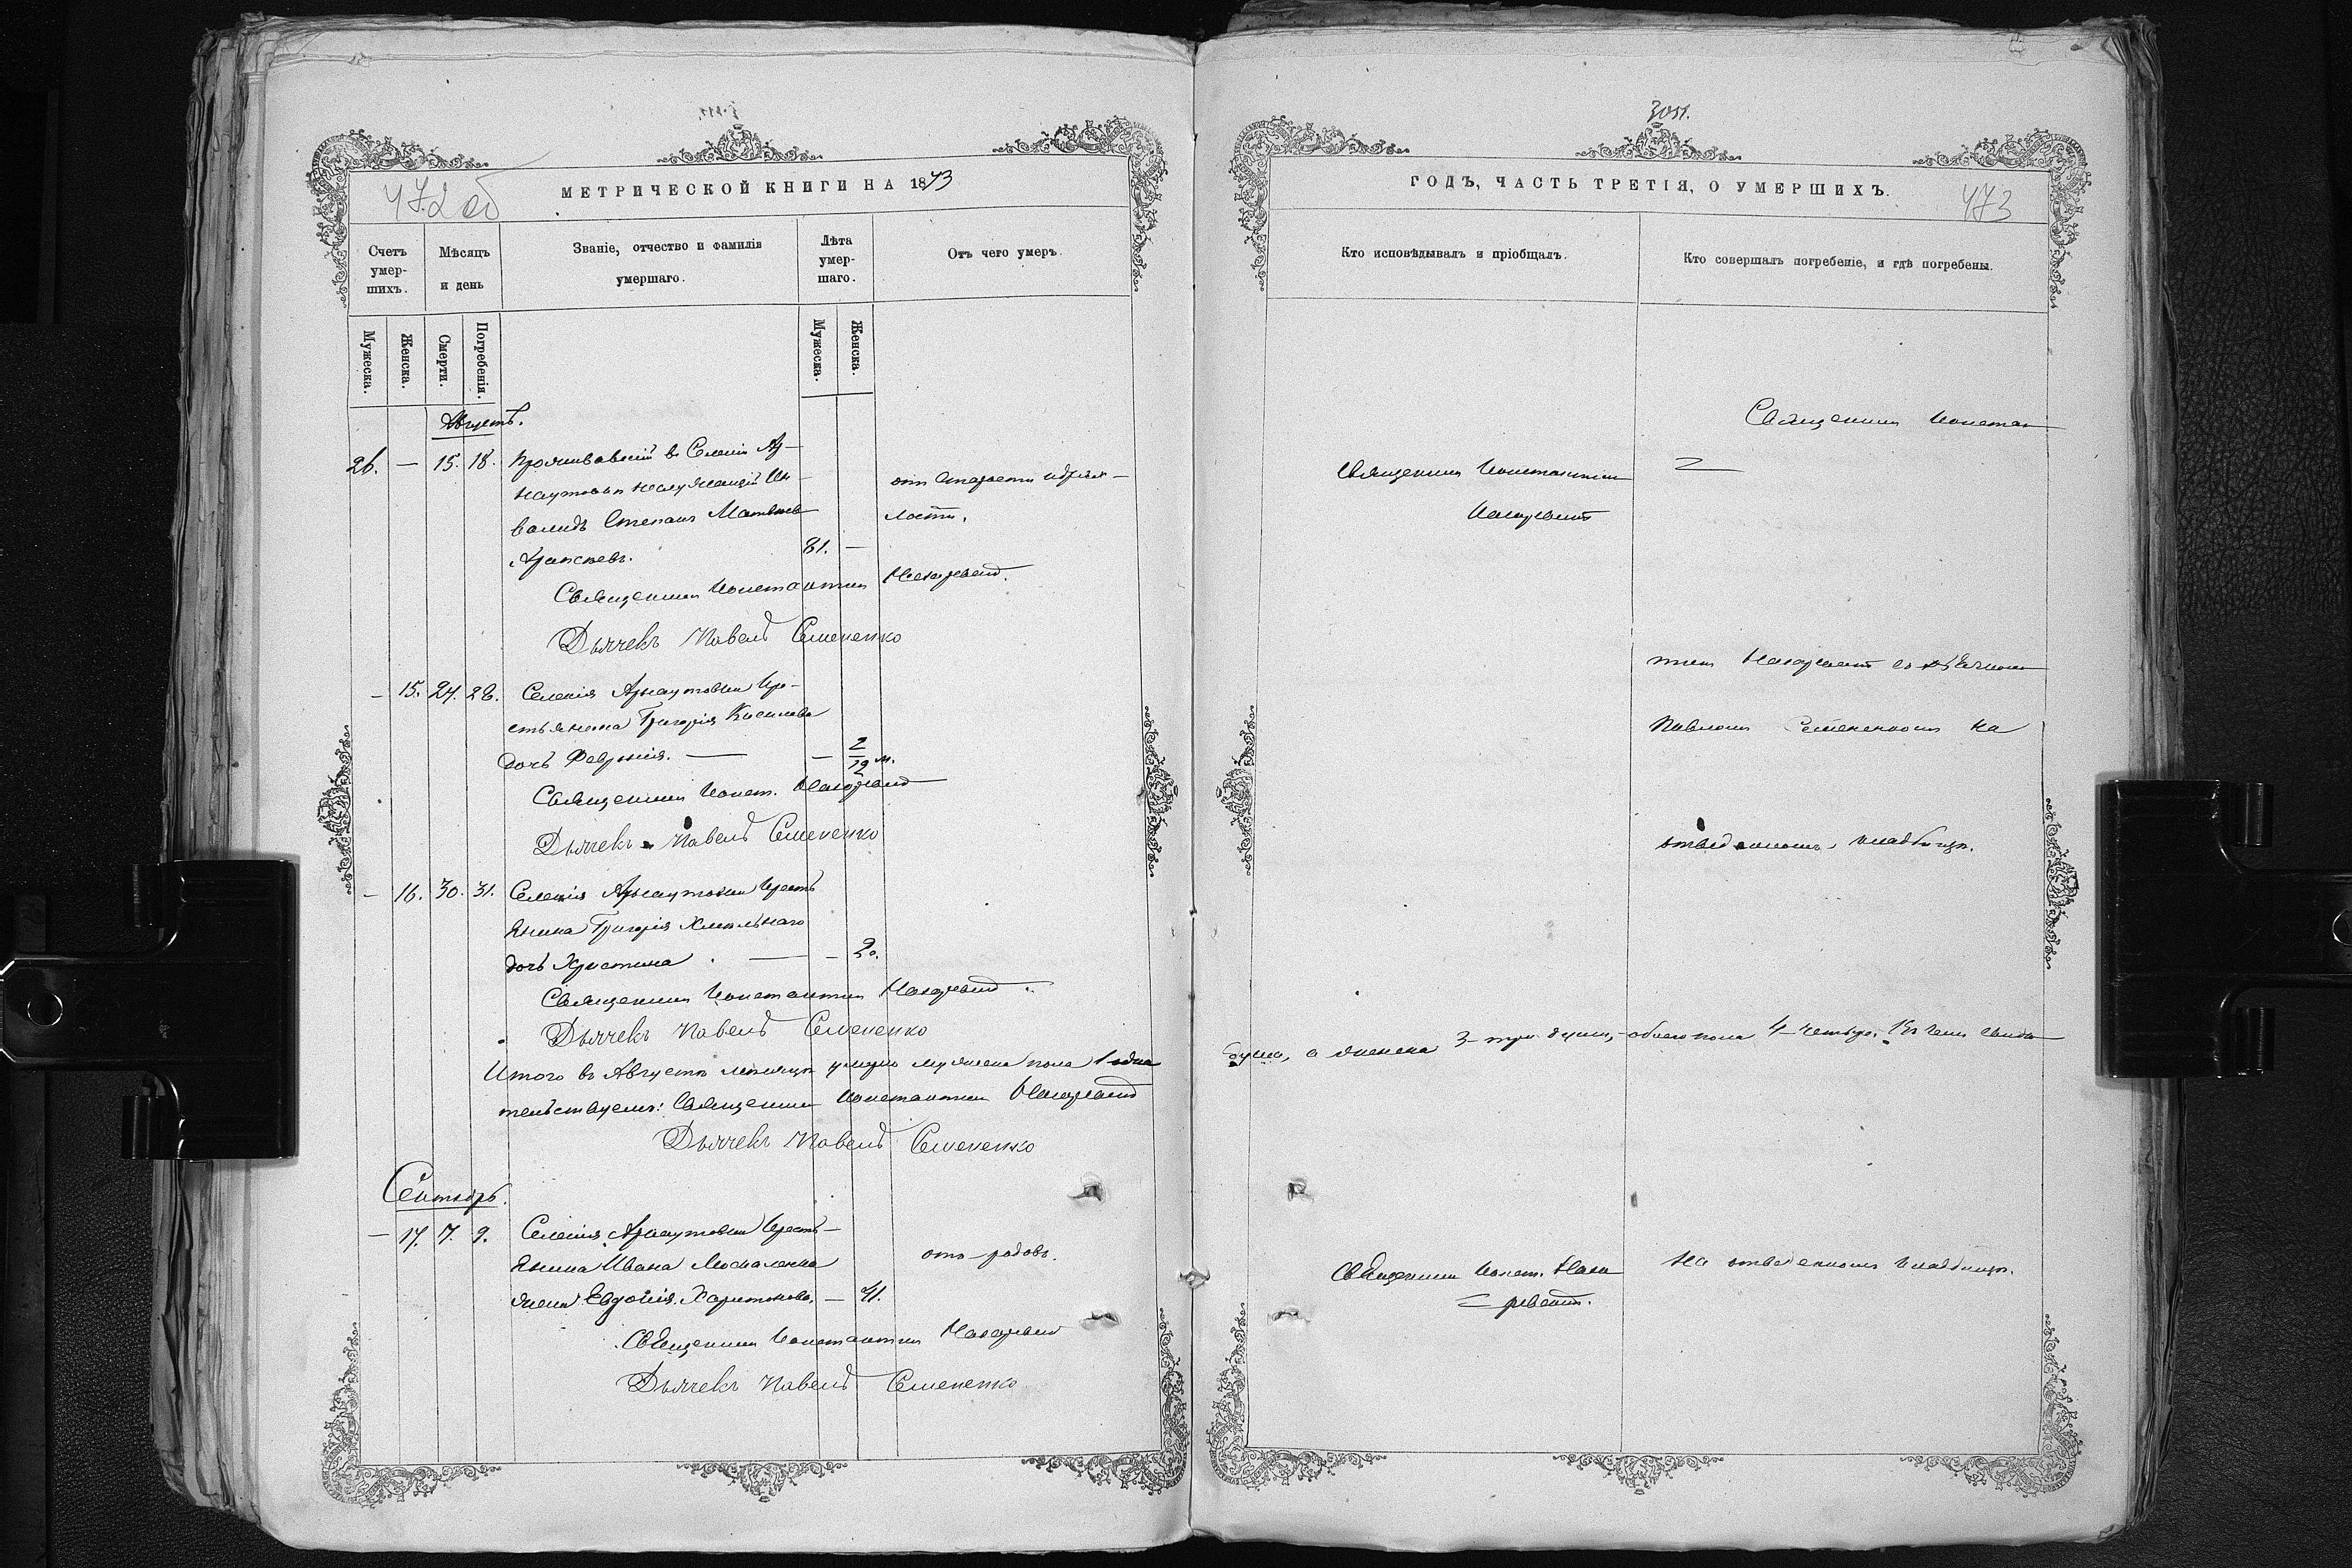 472 об
МЕТРИЧЕСКОЙ КНИГИ НА 1873
Счетъ умер-
шихъ.
Мѣсяцъ
и день
Званіе, отчество и фамилія
умершаго.
Лѣта
умер-
шаго.
Отъ чего умеръ.
Мужеска.
Женска.
Смерти.
Погребенія.
Мужеска.
Женска.
Августъ.
26. — 15. 18. Проживавшій въ Селеніи Ар-
наутовкѣ неслужащій Ин-
валидъ Степанъ Матвѣевъ
81. —
отъ старости и дрях-
лости.
Священникъ Константинъ
Дьячекъ Павелъ Семененко
— 15. 27. 28. Селенія Арнаутовки Кре-
стьянина Григорія
дочь Февронія. — — 2/12 м.
Священникъ Конст.
Дьячекъ Павелъ Семененко
— 16. 30. 31. Селенія Арнаутовки Кресть
янина Григорія Хмельнаго
дочь Христина. — — 2.
Священникъ Константинъ
Дьячекъ Павелъ Семененко
Итого въ Августѣ мѣсяцѣ умерло мужеска пола 1 одна
тельствуемъ: Священникъ Константинъ
Дьячекъ Павелъ Семененко
Сентябрь.
— 17. 7. 9. Селенія Арнаутовки Кресть-
янина Ивана Москаленка
жена Евдокія Харитонова. — 41.
отъ родовъ.
Священникъ Константинъ
Дьячекъ Павелъ Семененко
3051.
ГОДЪ, ЧАСТЬ ТРЕТІЯ, О УМЕРШИХЪ.
473
Кто исповѣдывалъ и пріобщалъ.
Кто совершалъ погребеніе, и гдѣ погребены.
Священникъ Константинъ
Священникъ Констан
тинъ съ дьячкомъ
Павломъ Семененкомъ на
отведенномъ кладбищѣ.
душа, а женска 3 три души, обоего пола 4 четыре. Въ чемъ свидѣ
Священникъ Конст.
На отведенномъ кладбищѣ.